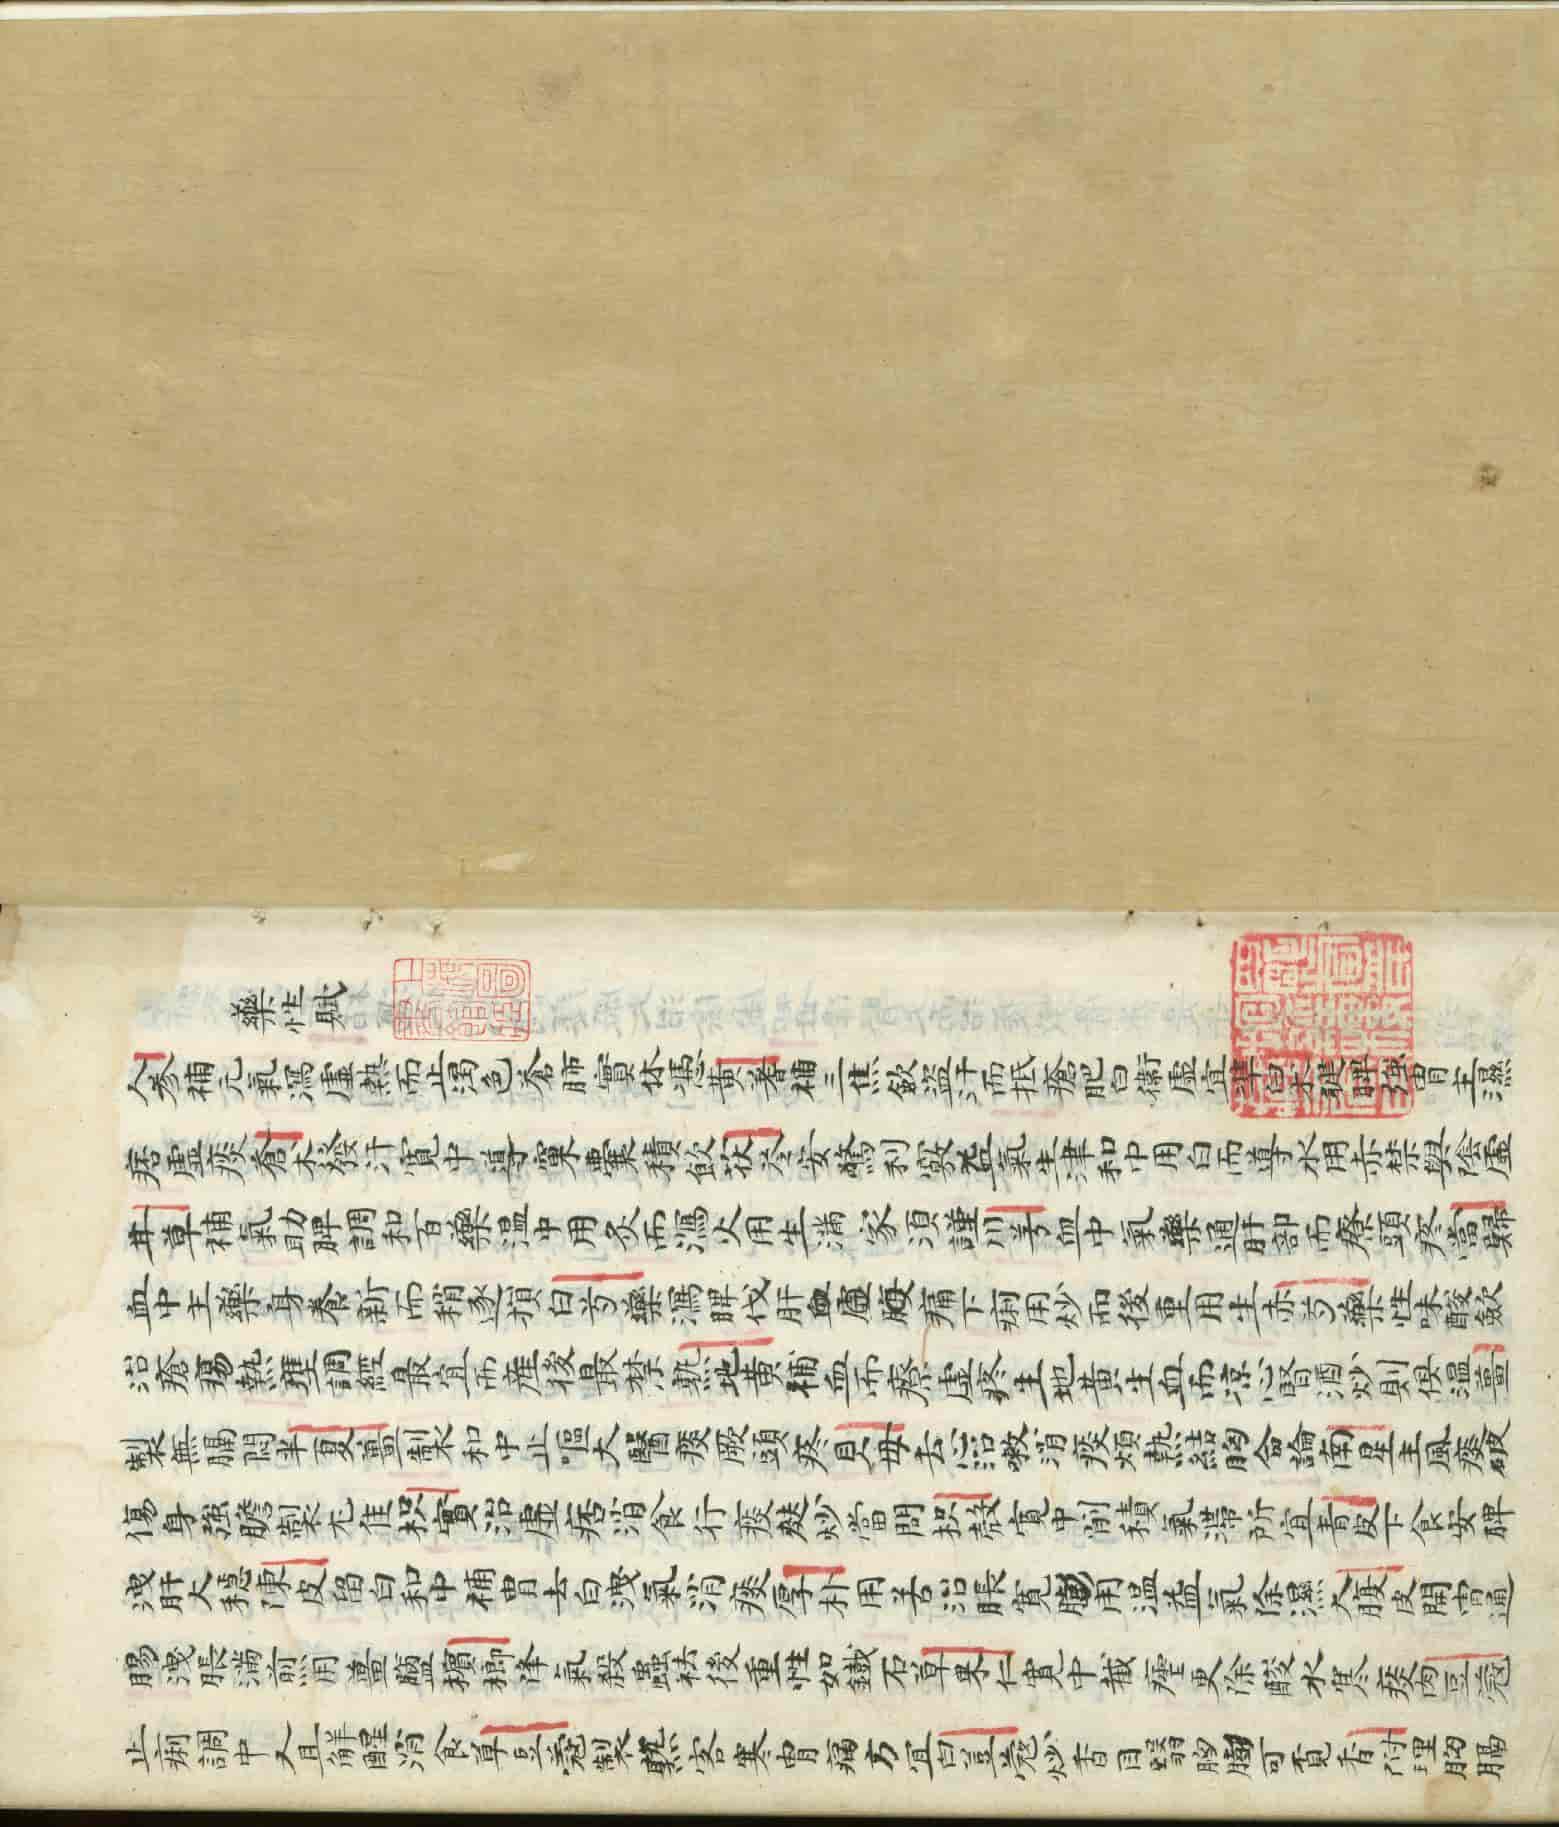 藥性賦
人參補元氣瀉虛熱而止渴色蒼肺實休憑黃蓍補三焦斂盜汗而抵瘡肥白衛虛宜準白朮健脾強胃主濕
痞虛痰蒼朮發汗寬中導窠囊積飲茯苓安驚利竅益氣生津和中用白而導水用赤禁與陰虛
甘草補氣助脾調和百藥溫中用炙而瀉火用生滿家須謹川芎血中氣藥通肝部而療頭疼當歸
血中主藥身養新而稍逐損白芍藥瀉脾伐肝血虛腹痛下痢用炒而後重用生赤芍藥性味酸斂
治瘡瘍熱壅調經最宜而產後最禁熟地黃補血而療虛疼生地黃生血而凉心腎酒炒則俱溫薑
製無膈悶半夏薑製和中止嘔大醫痰厥頭疼貝母去心治嗽消痰煩熱結胸合論南星主風痰破
傷身強膽製尤佳枳實治虛痞消食行痰麩炒當問枳殼寬中削積氣滯所宜青皮下食安脾
洩肝大穩陳皮留白和中補胃去白洩氣消痰厚朴用苦治脹寬膨用溫益氣除濕大腹皮開胃通
腸洩脹滿煎用薑鹽檳榔降氣殺蟲祛後重性如鐵石草果仁寬中截瘧更除酸水寒痰肉豆蔻
止痢調中又且解酲消食草豆蔻製熟客寒胃痛方宜白豆蔻炒香目翳胸膈可覓香附理胸膈